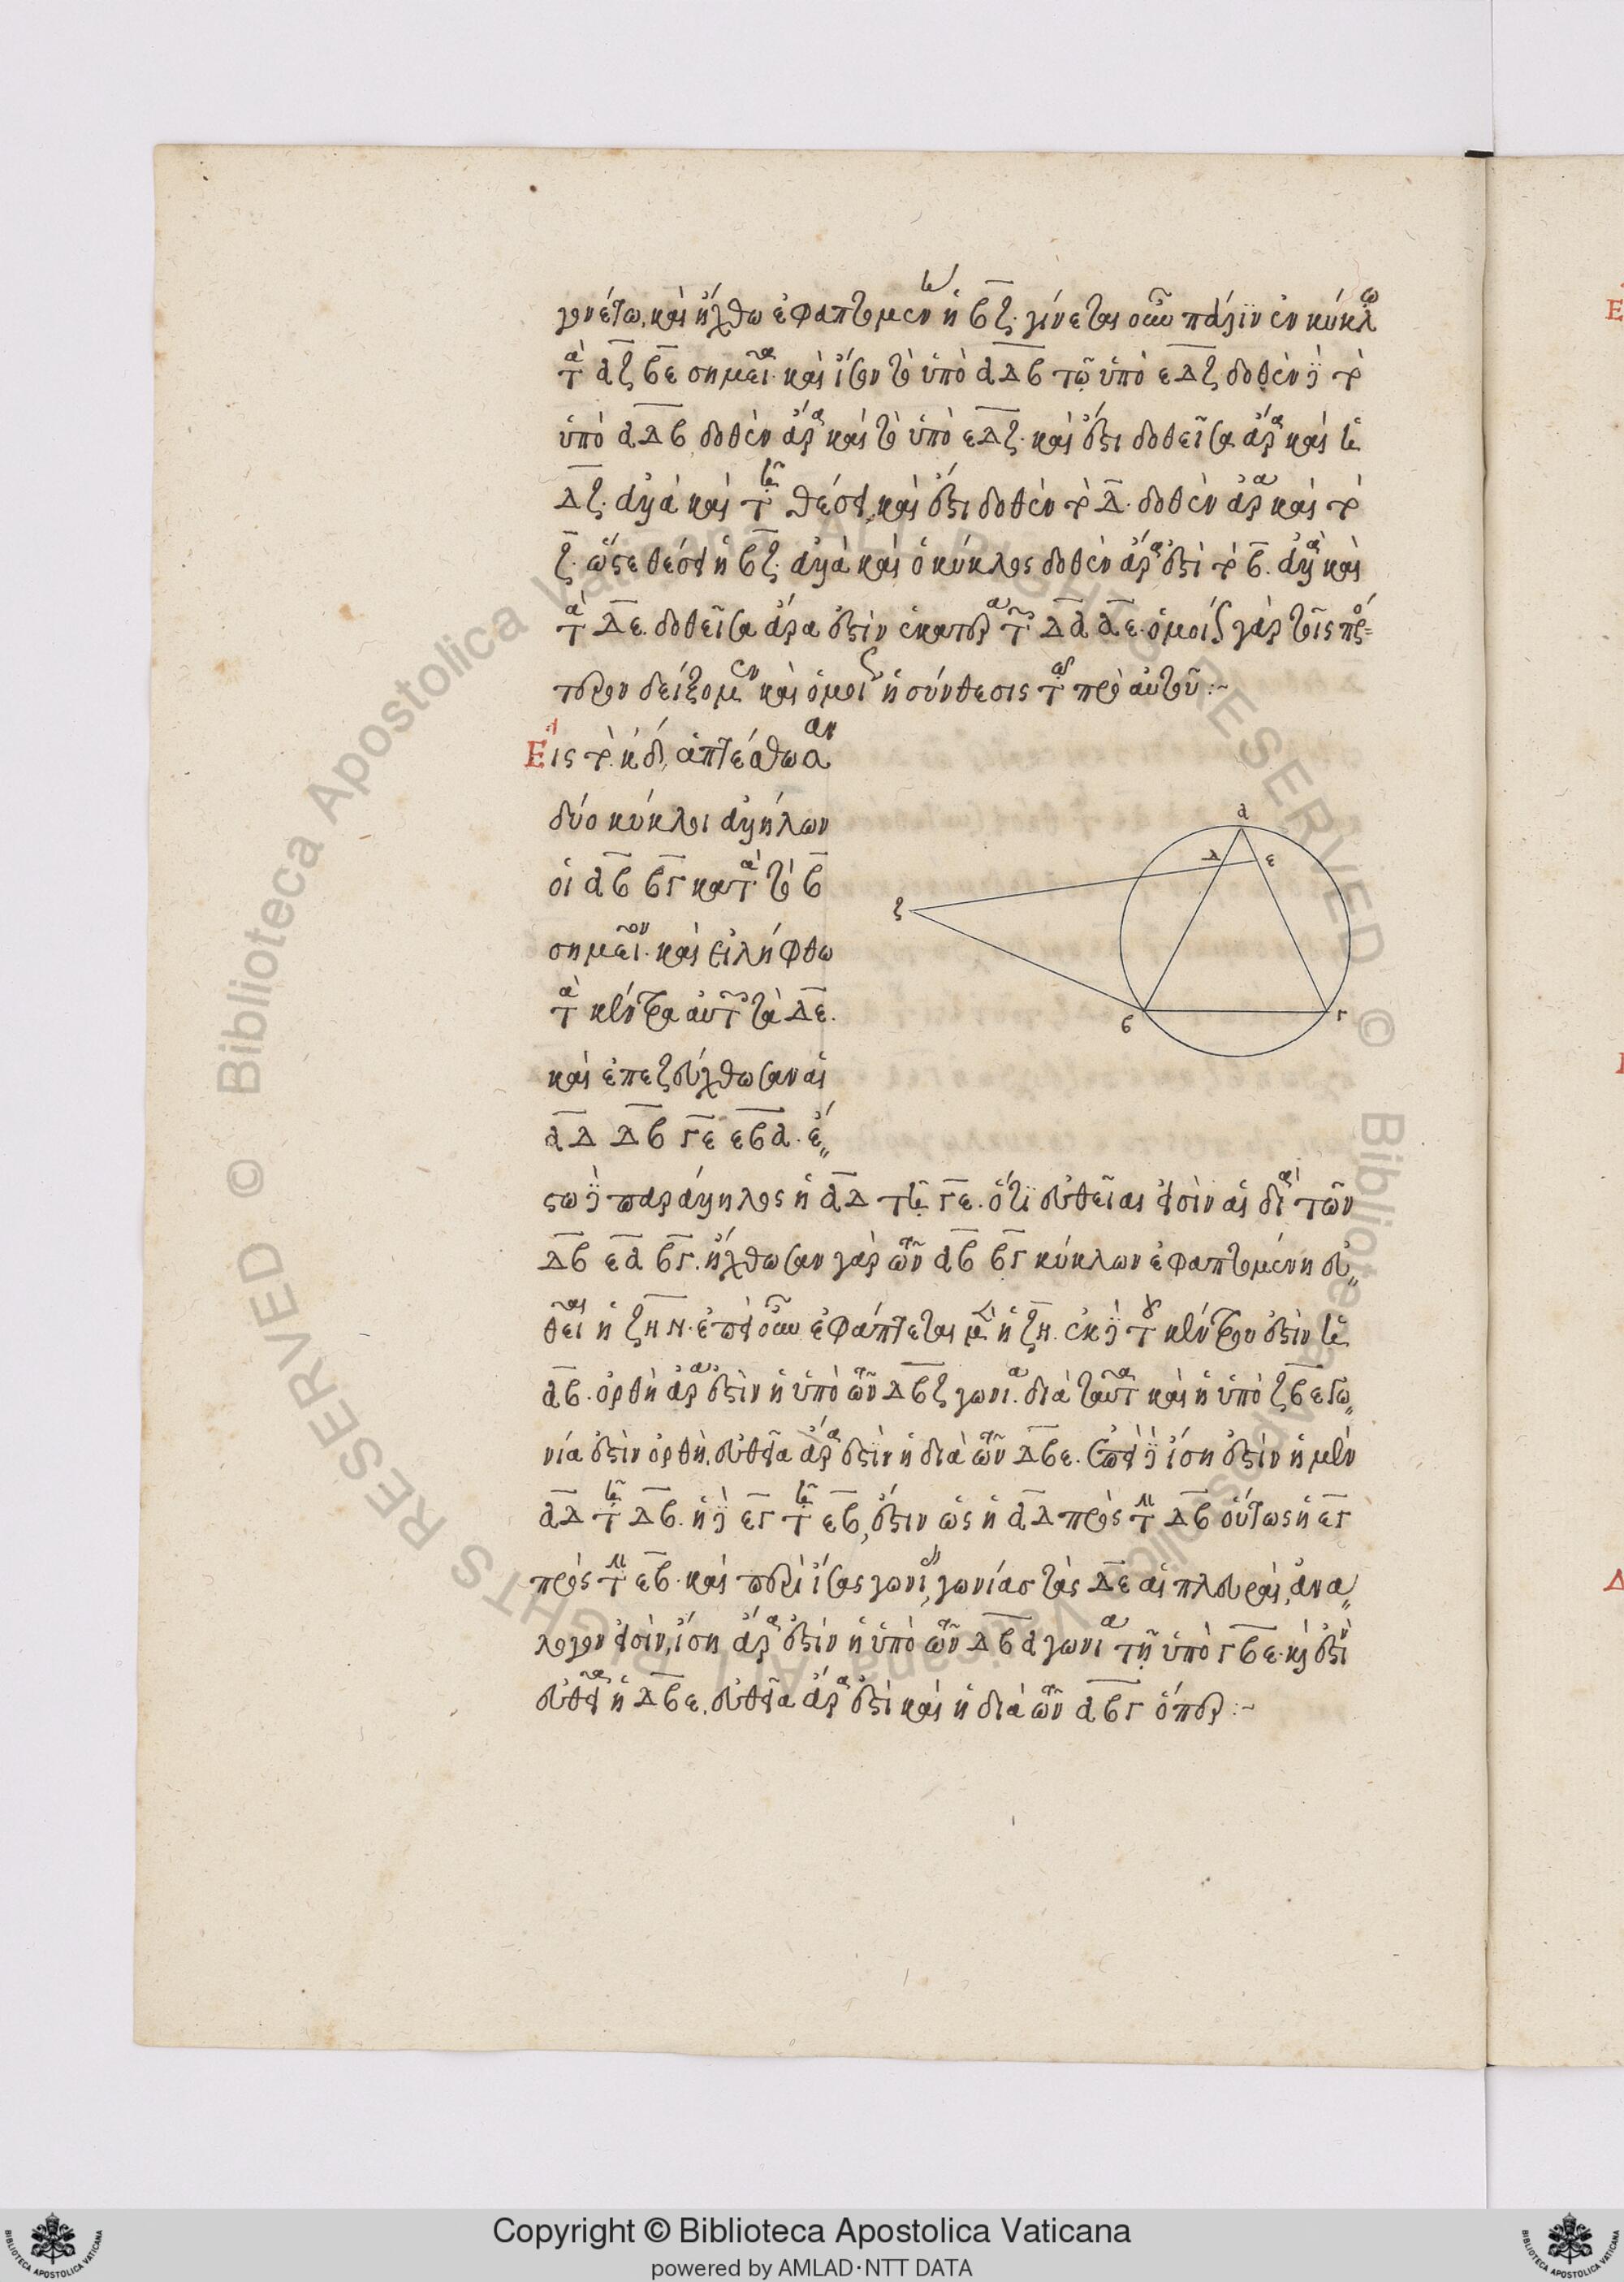 γονέτω, καὶ ἤχθω ἐφαπτομένη ἡ ΒΖ. γίνεται οὖν πάλιν ἐν κύκλῳ
τὰ ΑΖ ΒΕ σημεῖα. καὶ ἴσον τὸ ὑπὸ ΑΔΒ τῷ ὑπὸ ΕΔΖ. δοθὲν δὲ τὸ
ὑπὸ ΑΔΒ, δοθὲν ἄρα καὶ τὸ ὑπὸ ΕΔΖ. καὶ ἔστι δοθεῖσα ἄρα καὶ ἡ
ΔΖ. ἀλλὰ καὶ τῇ θέσει, καὶ ἔστι δοθὲν τὸ Δ. δοθὲν ἄρα καὶ τὸ
Ζ. ὥστε θέσει ἡ ΒΖ. ἀλλὰ καὶ ὁ κύκλος δοθὲν ἄρα ἐστὶ τὸ Β. ἀλλὰ καὶ
τὰ ΔΕ. δοθεῖσα ἄρα ἐστὶν ἑκατέρα τῶν ΔΑ ΑΕ. ὁμοίως γὰρ τοῖς πρό-
τερον δείξομεν καὶ ὁμοίως ἡ σύνθεσις τ πρὸ αὐτοῦ:~
Εἰς τὸ κδ, ἁπτέσθωσαν
δύο κύκλοι ἀλλήλων
οἱ ΑΒ ΒΓ κατὰ τὸ Β
σημεῖον. καὶ εἰλήφθω
τὰ κέντρα αὐτῶν τὰ ΔΕ.
καὶ ἐπεζεύχθωσαν αἱ
ΑΔ ΔΒ ΓΕ ΕΒΑ. ἔ
στω δὲ παράλληλος ἡ ΑΔ τῇ ΓΕ. ὅτι εὐθεῖαι εἰσὶν αἱ διὰ τῶν
ΔΒ ΕΑ ΒΓ. ἤχθωσαν γὰρ τῶν ΑΒ ΒΓ κύκλων ἐφαπτομένη εὐ
θεῖα ἡ ΖΗΝ. ἐπεὶ οὖν ἐφάπτεται μὲν ἡ ΖΗ. ἐκ δὲ τοῦ κέντρου ἐστὶν ἡ
ΑΒ. ὀρθὴ ἄρα ἐστὶν ἡ ὑπὸ τῶν ΔΒΖ γωνία. διὰ ταῦτα καὶ ἡ ὑπὸ ΖΒΕ γω
νία ἐστὶν ὀρθὴ, εὐθεῖα ἄρα ἐστὶν ἡ διὰ τῶν ΔΒΕ. ἐπεὶ δὲ ἴση ἐστὶν ἡ μὲν
ΑΔ τῇ ΔΒ. ἡ δὲ ΕΓ τῇ ΕΒ, ἔστιν ὡς ἡ ΑΔ πρὸς τὴν ΔΒ οὕτως ἡ ΕΓ
πρὸς τὴν ΕΒ. καὶ περὶ ἴσας γωνίας γωνίας τὰς ΔΕ αἱ πλευραὶ, ἀνα
λογον εἰσὶν, ἴση ἄρα ἐστὶν ἡ ὑπὸ τῶν ΔΒΑ γωνία τῇ ὑπὸ ΓΒΕ. καὶ ἐστὶν
εὐθεῖα ἡ ΔΒΕ. εὐθεῖα ἄρα ἐστὶ καὶ ἡ διὰ τῶν ΑΒΓ ὅπερ:~
Α
Δ
Ε
Ζ
Β
Γ
© Biblioteca Apostolica Vaticana ALL RIGHTS RESERVED
Copyright © Biblioteca Apostolica Vaticana
powered by AMLAD·NTT DATA